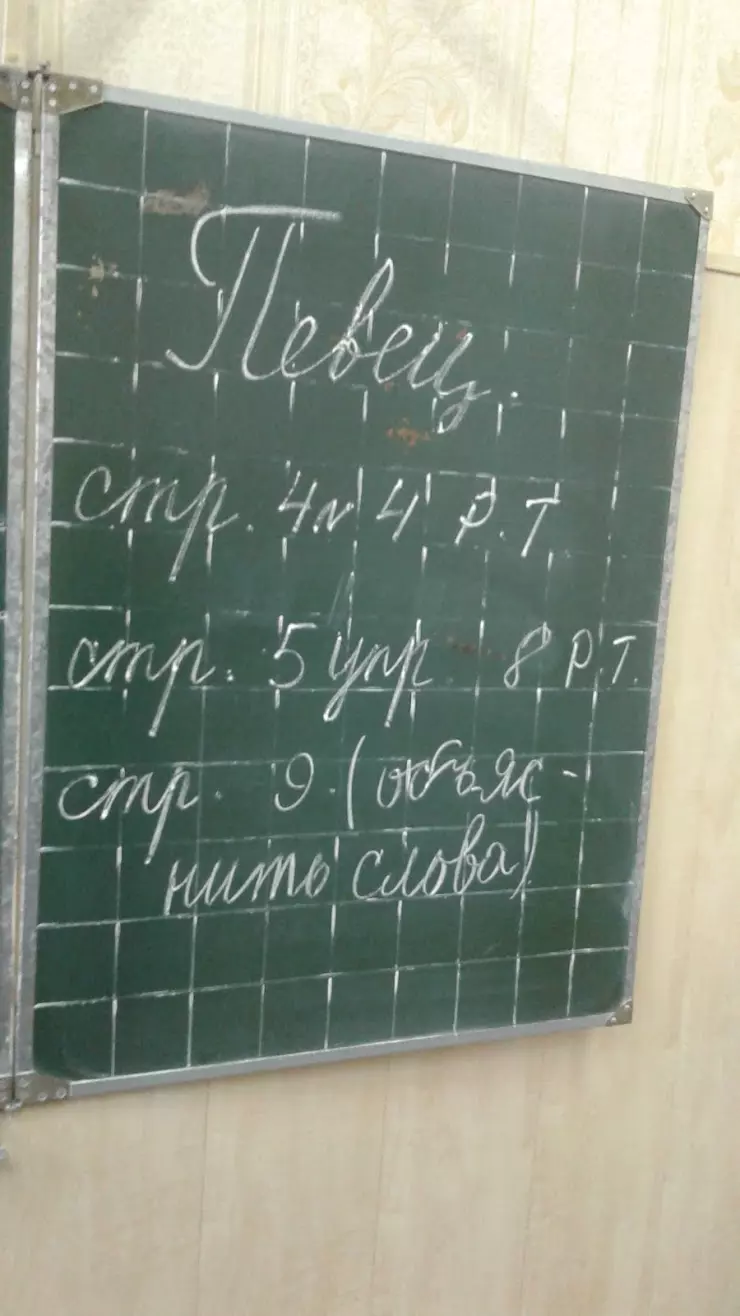 Певец.
стр. 4 и 4 Р.Т
стр. 5 упр 8 Р.Т.
стр. 9. (объяс-
нить слова)